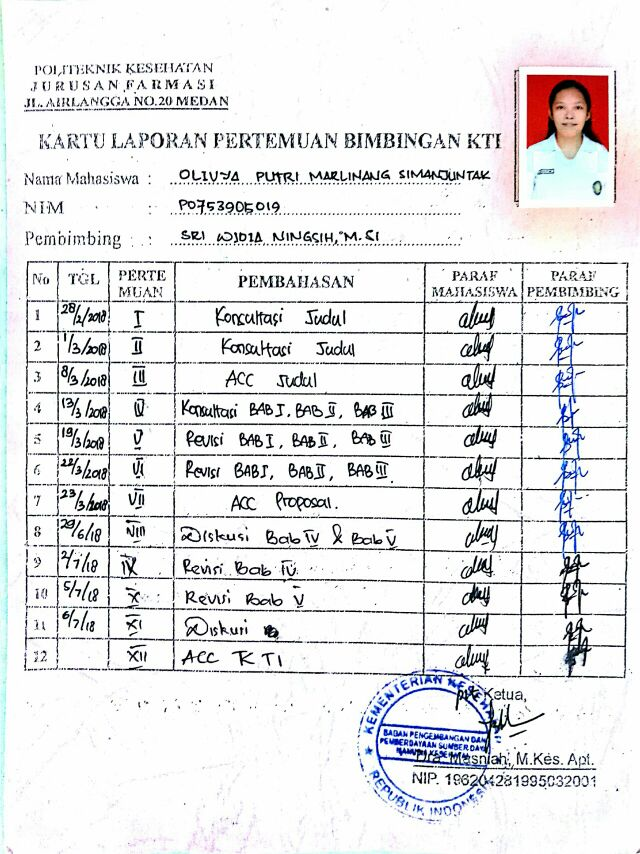 POLITEKNIK KESEHATAN
JURUSAN FARMASI
JL. AIRLANGGA NO.20 MEDAN
KARTU LAPORAN PERTEMUAN BIMBINGAN KTI
Nama Mahasiswa : OLIVYA PUTRI MARLINANG SIMANJUNTAK
NIM : P0753905019
Pembimbing : SRI WIDIA NINGSIH, M.SI
No TGL PERTEMUAN PEMBAHASAN PARAF MAHASISWA PARAF PEMBIMBING
1 28/2/2018 I Konsultasi Judul
2 1/3/2018 II Konsultasi Judul
3 8/3/2018 III ACC Judul
4 13/3/2018 IV Konsultasi BAB I, BAB II, BAB III
5 19/3/2018 V Revisi BAB I, BAB II, BAB III
6 22/3/2018 VI Revisi BAB I, BAB II, BAB III
7 23/3/2018 VII ACC Proposal.
8 29/6/18 VIII Diskusi Bab IV & Bab V
9 2/7/18 IX Revisi Bab IV
10 5/7/18 X Revisi Bab V
11 6/7/18 XI Diskusi
12 XII ACC KTI
Ketua,
KEMENTERIAN
BADAN PENGEMBANGAN DAN
PEMBERDAYAAN SUMBER DAYA
MANUSIA KESEHATAN
REPUBLIK INDONESIA
Dra. Masniah, M.Kes. Apt.
NIP. 196204281995032001